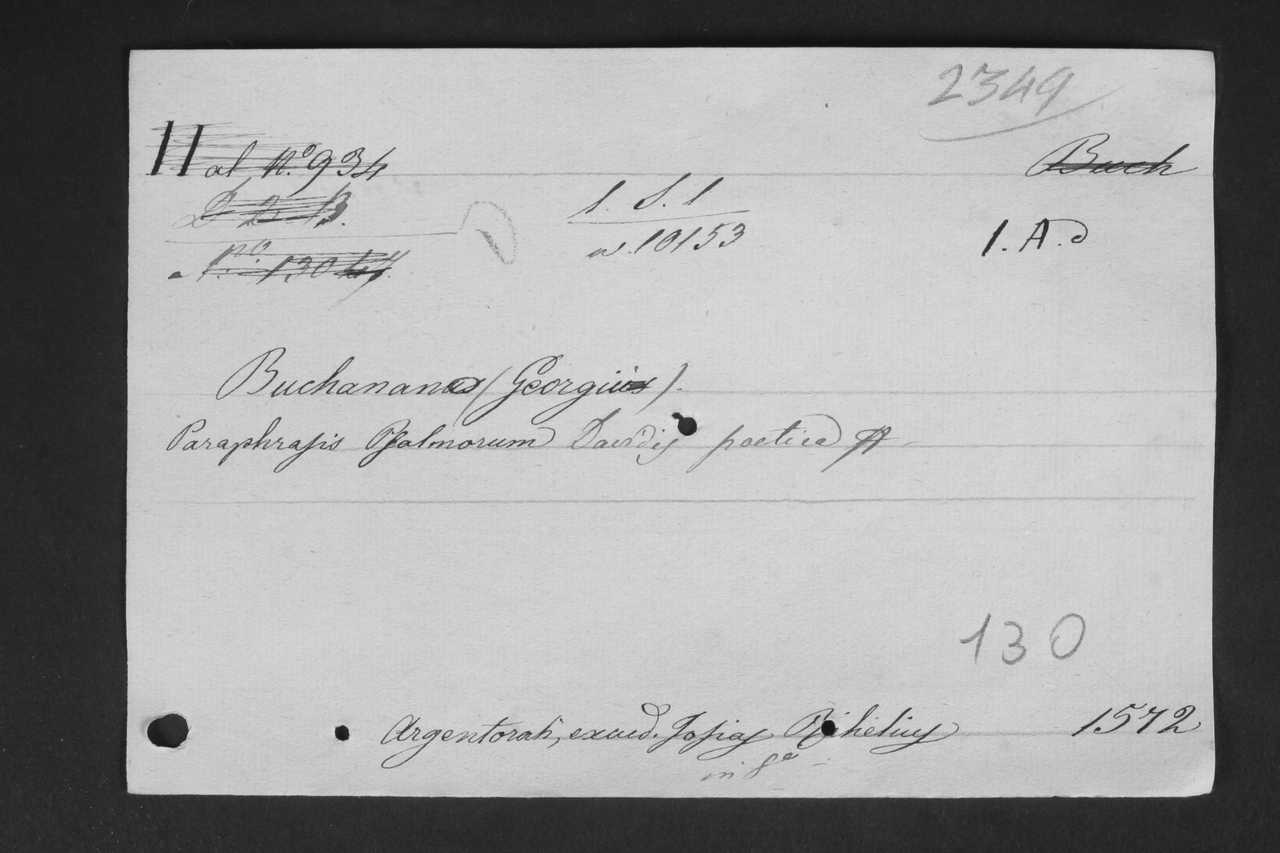 2349
al. No. 934
Buch
D 2 B.
1. S. 1
No. 130
a. 10153
1. A. d
Buchananus (Georgius).
Paraphrasis Psalmorum Davidis poetica
130
Argentorati, exud. Josias Rihelius 1572
in 8º